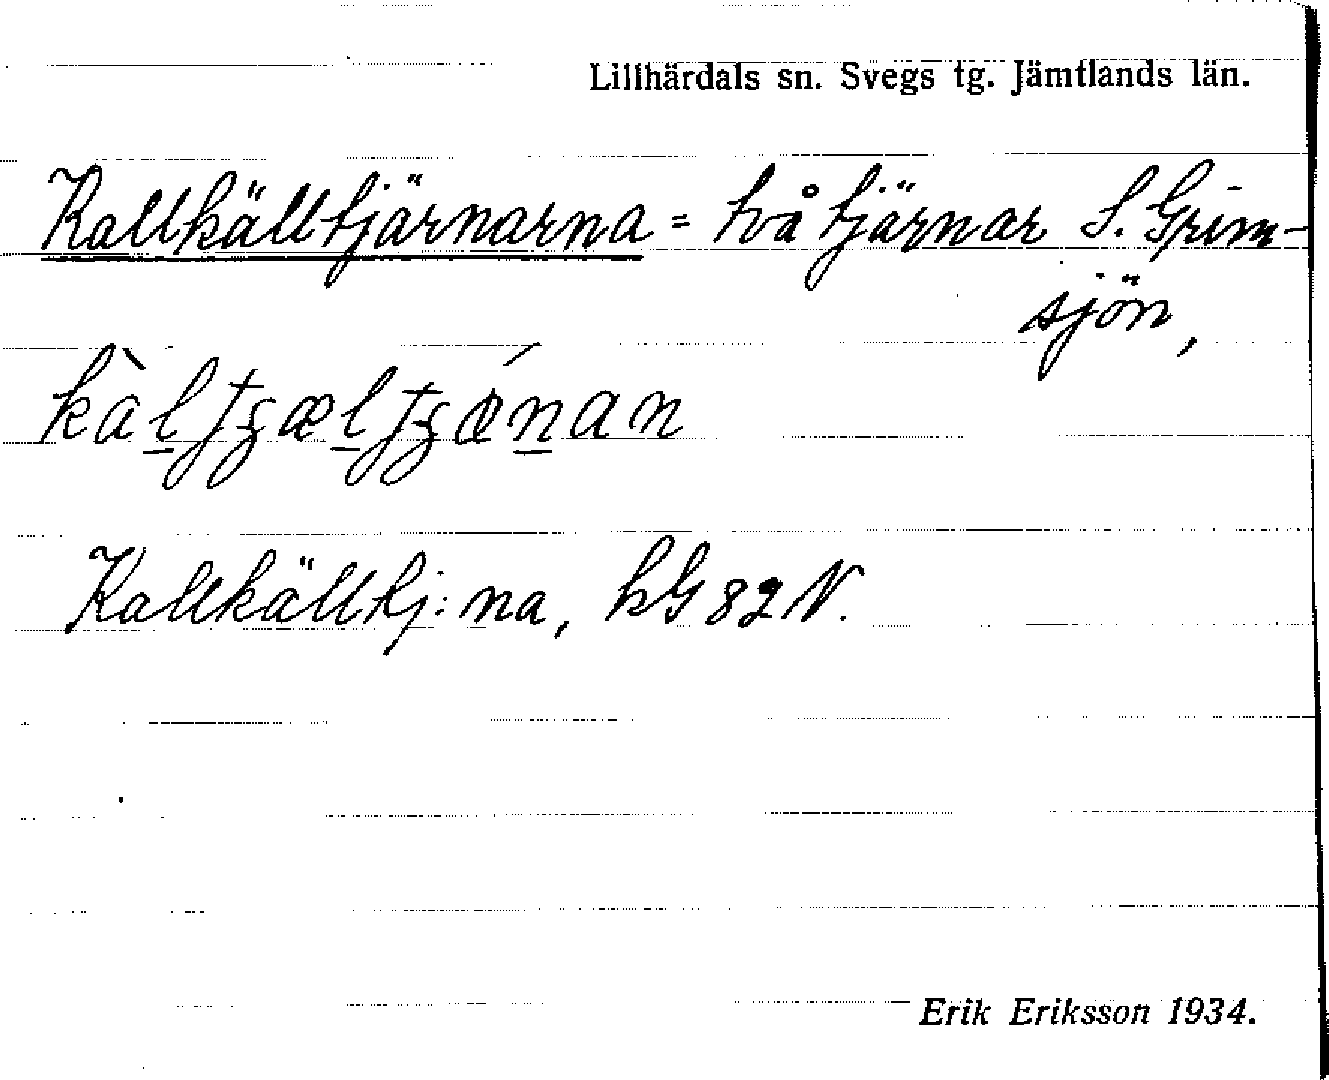 Lillhärdals sn. Svegs tg. Jämtlands län.
Kallkälltjärnarna = två tjärnar S. Grim-
sjön,
Kallkälltj:na, kG 82 N.
Erik Eriksson 1934.